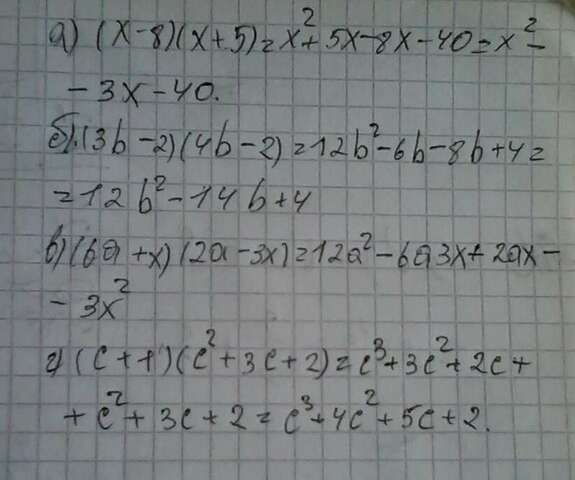 а) (x-8)(x+5)=x²+5x-8x-40=x²-
-3x-40.
б).(3b-2)(4b-2)=12b²-6b-8b+4=
=12b²-14b+4
в)(6a+x)(2a-3x)=12a²-6a3x+2ax-
-3x²
г)(c+1)(c²+3c+2)=c³+3c²+2c+
+c²+3c+2=c³+4c²+5c+2.